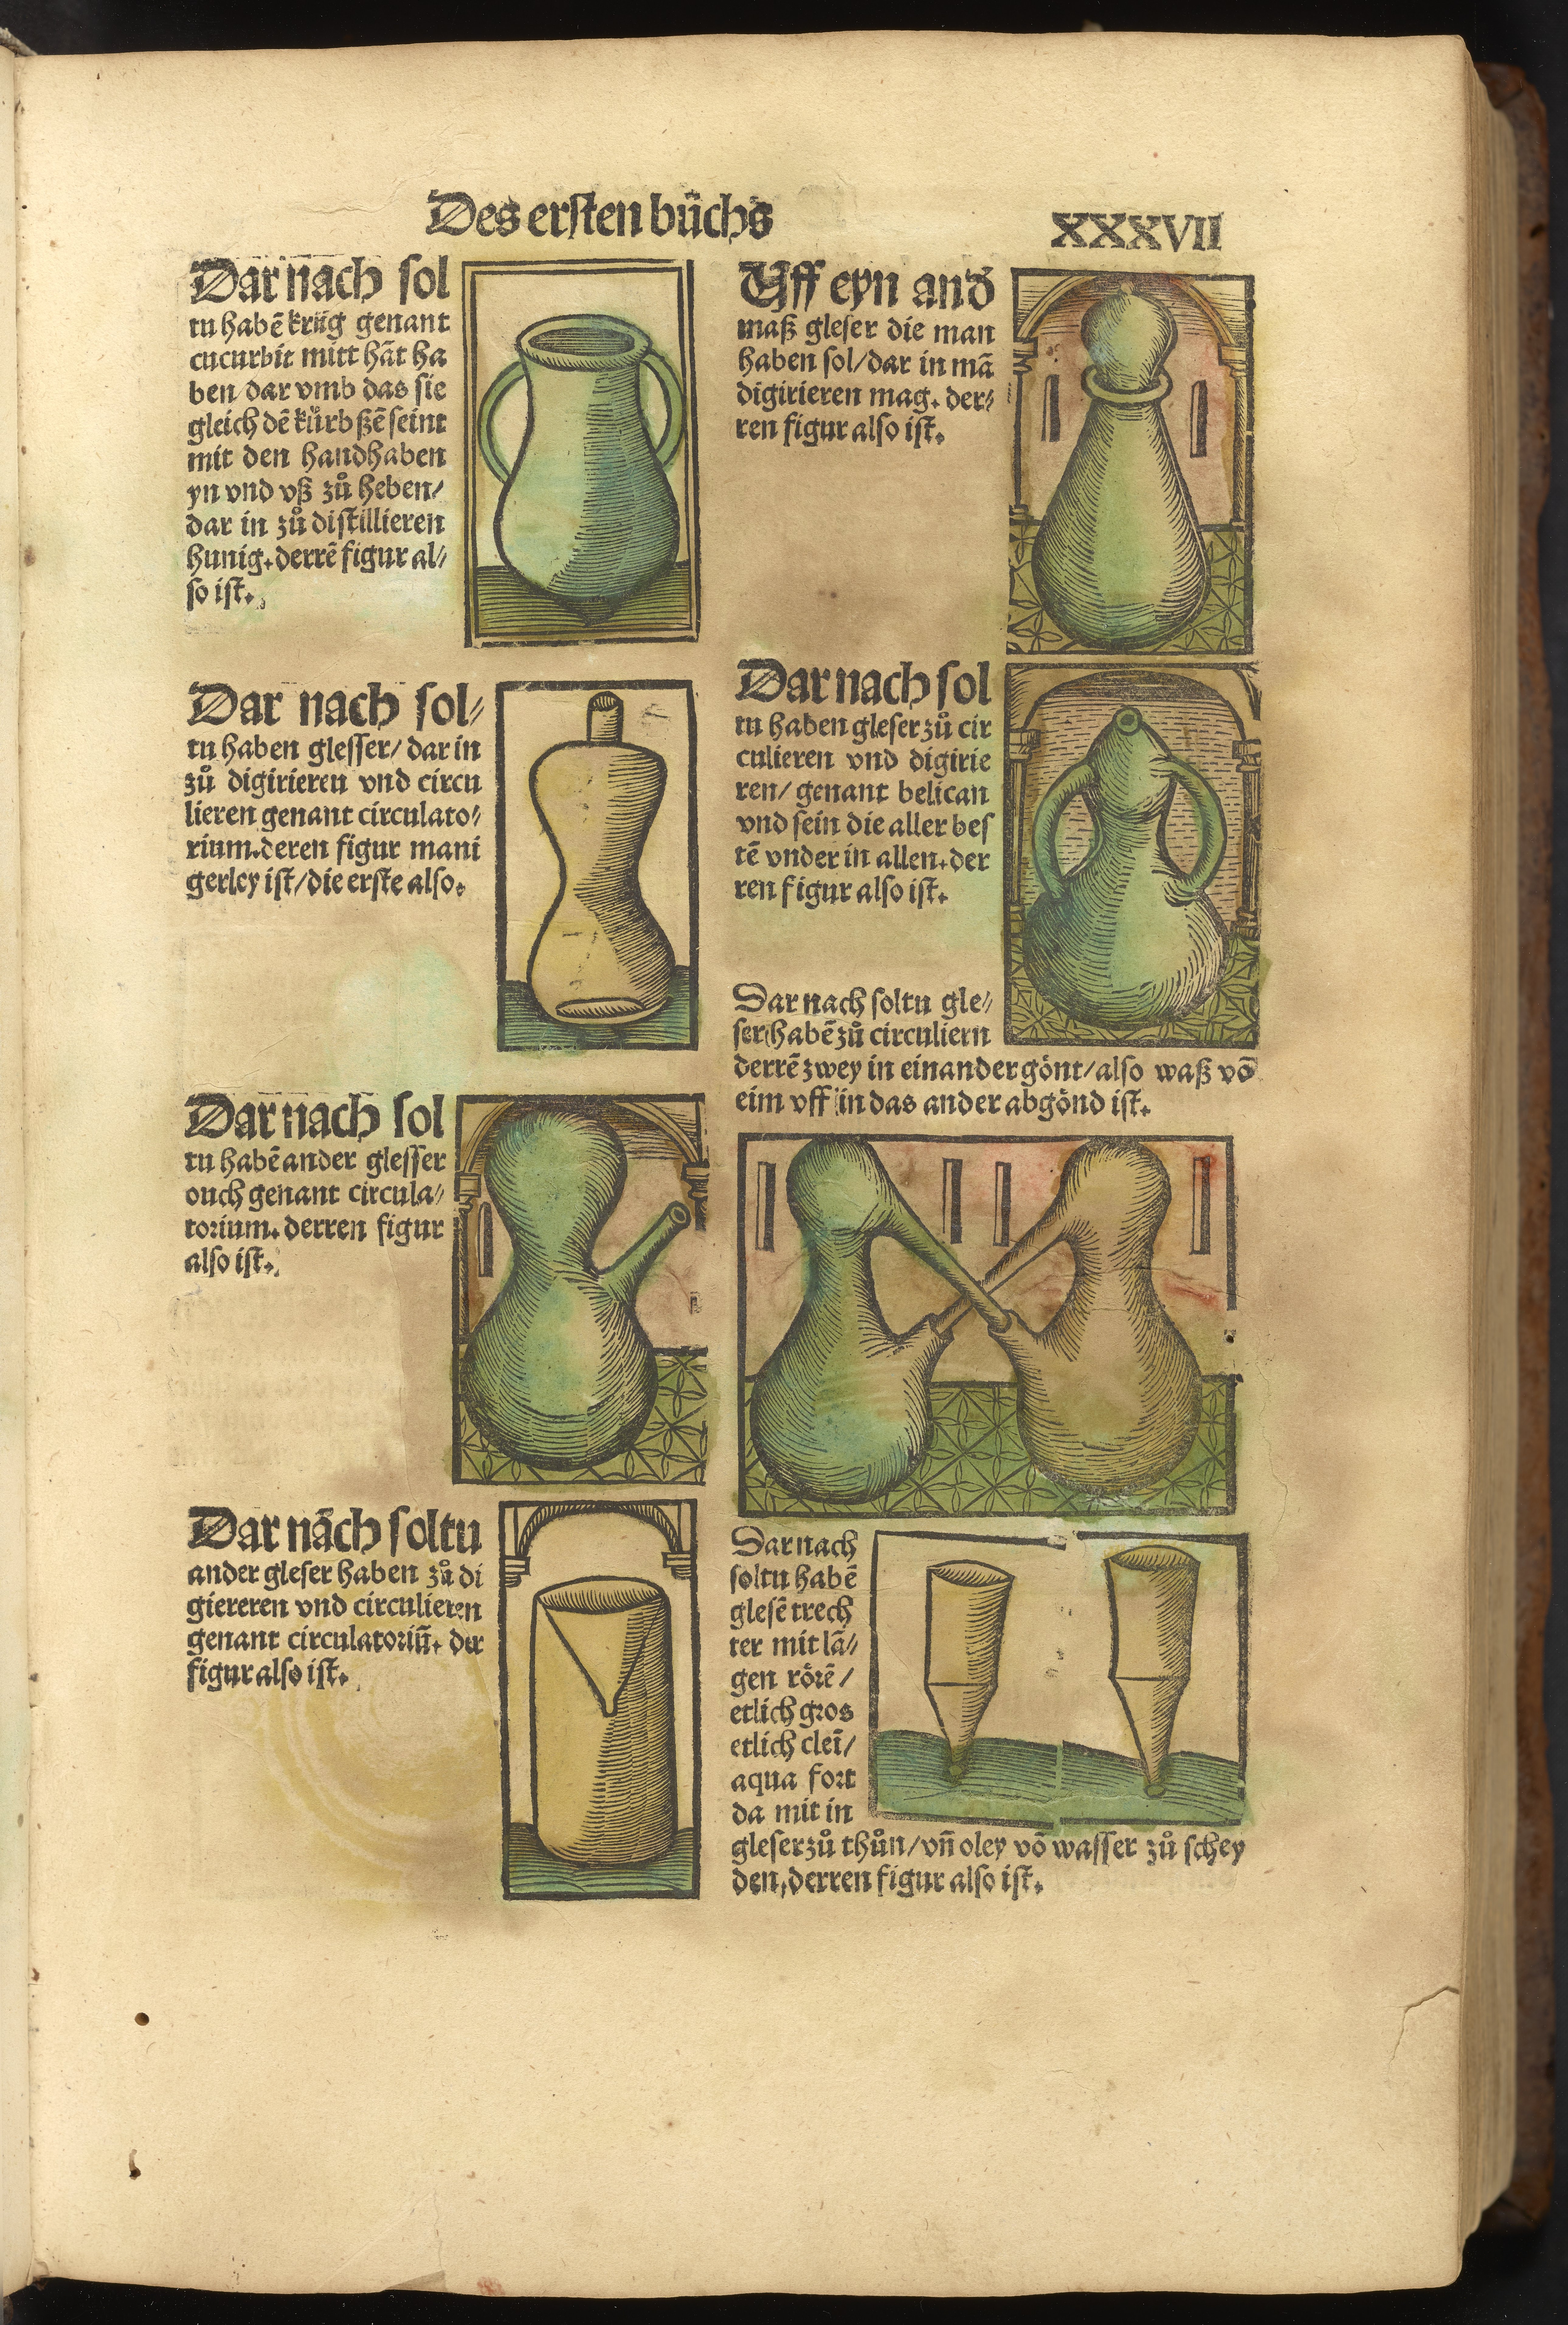 Des ersten bůchs
XXXVII
Dar nach sol
tu habē krůg genant
cucurbit mitt hāt ha
ben/dar vmb das sie
gleich dē kürbßē seint
mit den handhaben
yn vnd vß zů heben/
dar in zů distillieren
hunig. derrē figur al⸗
so ist.
Dar nach sol⸗
tu haben glesser/ dar in
zů digirieren vnd circu
lieren genant circulato⸗
rium. deren figur mani
gerley ist/die erste also.
Dar nach sol
tu habē ander glesser
ouch genant circula⸗
torium. derren figur
also ist.
Dar nāch soltu
ander gleser haben zů di
giereren vnd circulieren
genant circulatoriū. der
figur also ist.
Uff eyn and
maß gleser die man
haben sol/dar in mā
digirieren mag. der⸗
ren figur also ist.
Dar nach sol
tu haben gleser zů cir
culieren vnd digirie
ren/ genant belican
vnd sein die aller bes
tē vnder in allen. der
ren figur also ist.
Dar nach soltu gle⸗
ser habē zů circuliern
derrē zwey in einander gönt/also waß vō
eim vff in das ander abgönd ist.
Dar nach
soltu habē
glesē trech
ter mit lā⸗
gen rörē/
etlich gros
etlich cleī/
aqua fort
da mit in
gleser zů thůn/vn̄ oley vō wasser zů schey
den, derren figur also ist.